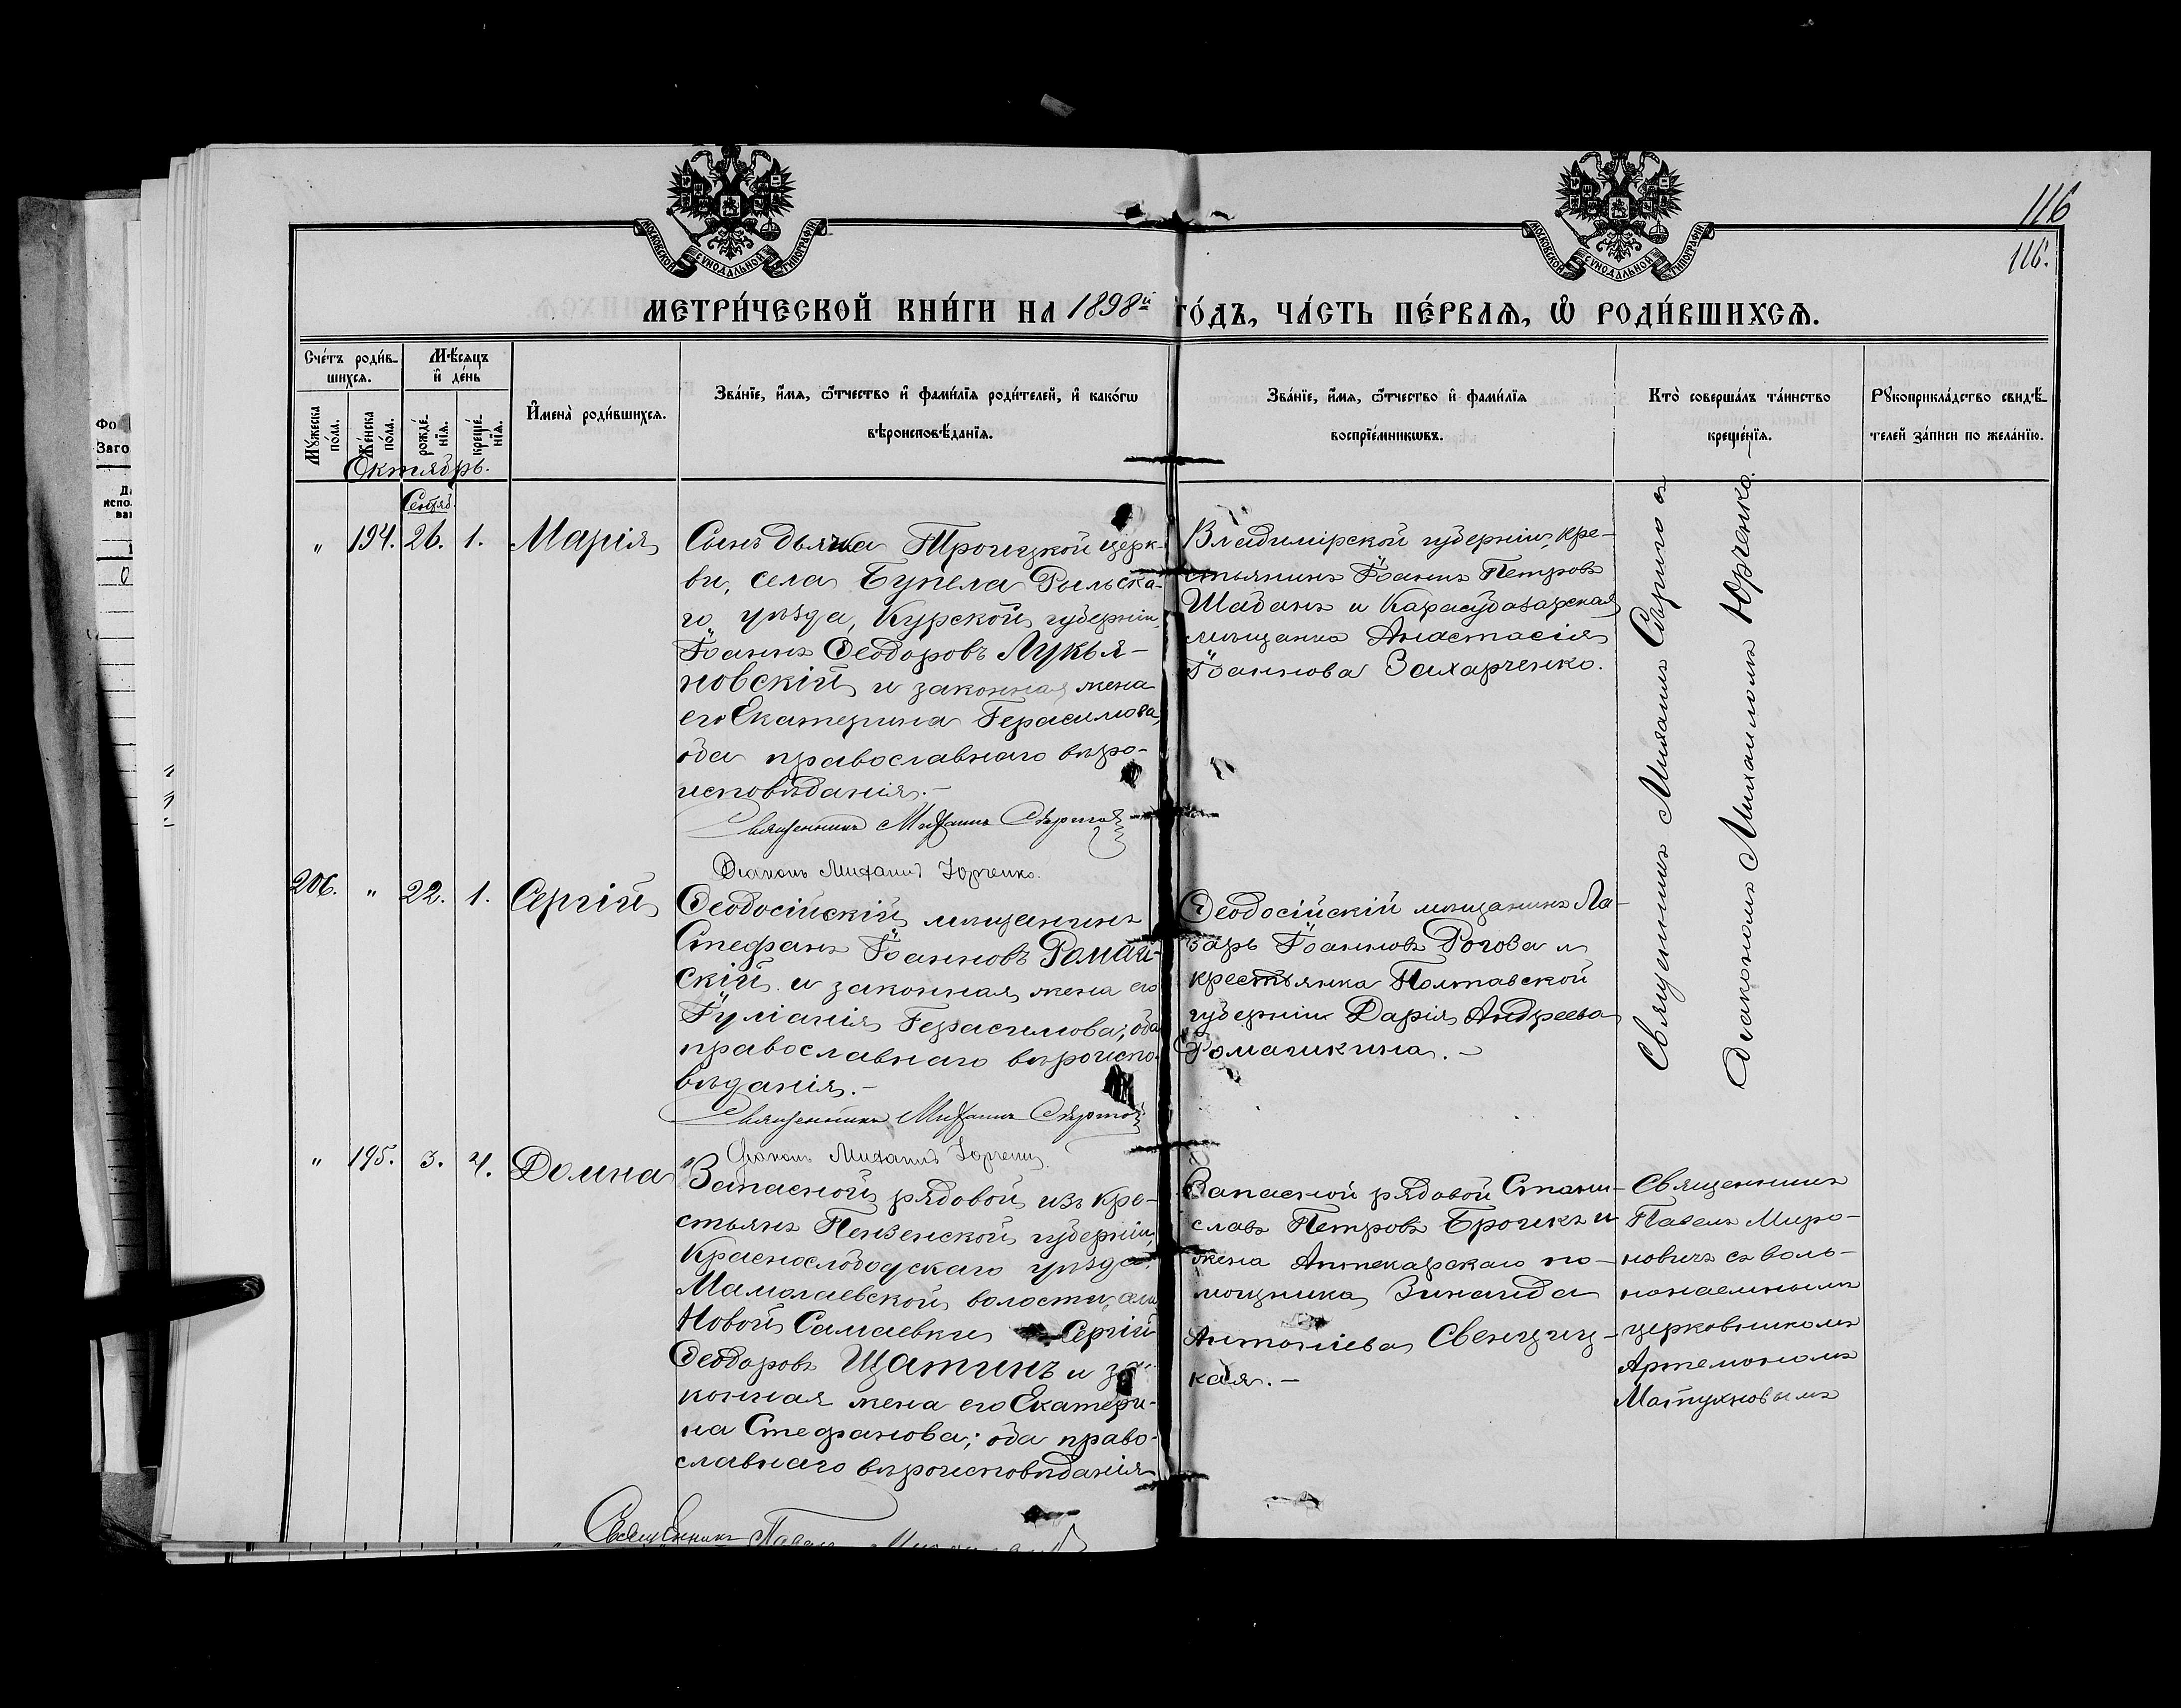 116
116.
МОСКОВСКОЙ СѴНОДАЛЬНОЙ ТИПОГРАФІИ
МОСКОВСКОЙ СѴНОДАЛЬНОЙ ТИПОГРАФІИ
МЕТРИ́ЧЕСКОЙ КНИ́ГИ НА 1898й ГО́ДЪ, ЧА́СТЬ ПЕ́РВАѦ, Ѡ҆ РОДИ́ВШИХСѦ.
Сче́тъ роди́в-
шихсѧ.
Мꙋ́жеска по́ла.
Же́нска по́ла.
Мѣ́сѧцъ
и҆ де́нь
рожде́нїѧ.
креще́нїѧ.
И҆мена̀ роди́вшихсѧ.
Зва́нїе, и҆́мѧ, ѻ҆́тчество и҆ фами́лїѧ роди́телей, и҆ како́гѡ
вѣроисповѣ́данїѧ.
Зва́нїе, и҆́мѧ, ѻ҆́тчество и҆ фами́лїѧ
воспрїе́мникѡвъ.
Кто̀ соверша́лъ та́инство
креще́нїѧ.
Рꙋкоприкла́дство свидѣ́-
телей за́писи по жела́нїю.
Октябрь.
Сентяб.
" 194. 26. 1. Марія
Сынъ дьячка Троицкой церк-
ви, села Бупела Рыльска-
го уѣзда, Курской губерніи,
Іоаннъ Ѳеодоровъ Лукья-
новскій и законная жена
его Екатерина Герасимова,
оба православнаго вѣро-
исповѣданія.-
Священникъ Михаилъ
Діаконъ Михаилъ Юрченко.
Владимірской губерніи, кре-
стьянинъ Іоаннъ Петровъ
Шабанъ и Карасубазарская
мѣщанка Анастасія
Іоаннова Захарченко.
Священникъ Михаилъ
Діакономъ Михаиломъ Юрченко.
206. " 22. 1. Сергій
Ѳеодосійскій мѣщанинъ
Стефанъ Іоанновъ
скій и законная жена его
Іуліанія Герасимова, оба
православнаго вѣроиспо-
вѣданія.-
Священникъ Михаилъ
Діаконъ Михаилъ Юрченко.
Ѳеодосійскій мѣщанинъ Ла-
зарь Іоанновъ Рогова и
крестьянка Полтавской
губерніи Дарія Андреева
Ромашкина.-
" 195. 3. 4. Домна
Запасной рядовой изъ кре-
стьянъ Пензенской губерніи,
Краснослободскаго уѣзда
Мамолаевской волости, села
Новой Самаевки Сергій
Ѳеодоровъ Щатинъ и за-
конная жена его Екатери-
на Стефанова; оба право-
славнаго вѣроисповѣданія
Священникъ Павелъ
Запасной рядовой Стани-
славъ Петровъ Брошкъ и
жена Аптекарскаго по-
мощника Зинаида
Антоніева Свенциц-
кая.-
Священникъ
Павелъ Миро-
новичъ съ воль-
нонаемнымъ
церковникомъ
Артемономъ
Матухновымъ